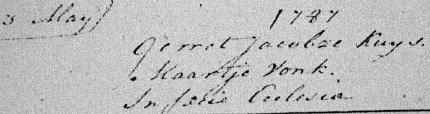 1787
3 May)
Gerret Jacobze Kuys.
Maartje Vonk.
In facie Eclesia